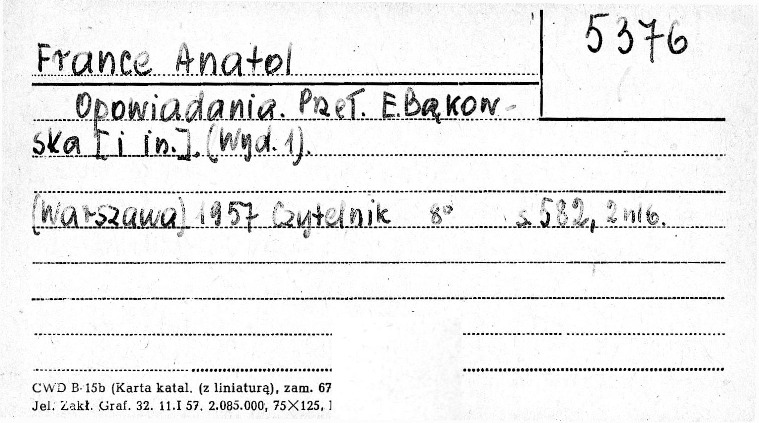 5376
France Anatol
Opowiadania. Przeł. E. Bąkow-
ska [i in.]. (Wyd. 1).
(Warszawa) 1957 Czytelnik 8° s. 582, 2 nlb.
CWD B-15b (Karta katal. (z liniaturą), zam. 67
Jel. Zakł. Graf. 32. 11.I 57. 2.085.000, 75×125,